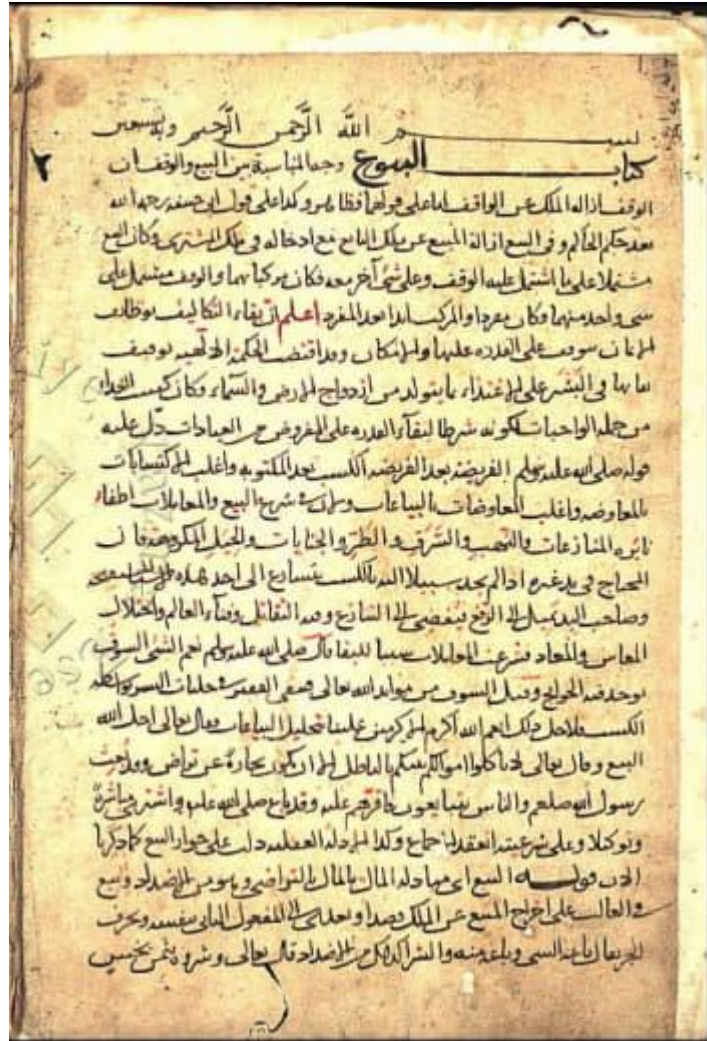 بسم الله الرحمن الرحيم وبه نستعين
كتاب البيوع وجه المناسبة بين البيع والوقف ان
الوقف ازالة الملك عن الواقف اما على قولهما فظاهر وكذا على قول ابي حنيفة رحمه الله
بعد حكم الحاكم وفي البيع ازالة المبيع عن ملك البائع مع ادخاله في ملك المشتري وكان البيع
مشتملا على ما اشتمل عليه الوقف وعلى شئ آخر معه فكان مركبا بهما والوقف مشتمل على
شئ واحد منهما وكان مفردا والمركب ابدا بعد المفرد اعلم ان بقاء التكاليف بوظائف
الايمان موقوف على القدرة عليها والامكان وقد اقتضت الحكمة الالهية توقيف
بقائها في البشر على الاغتذاء بما يتولد من ازدواج الارض والسماء وكان كسب الغذاء
من جملة الواجبات لكونه شرطا لبقآء القدرة على المفروض من العبادات دل عليه
قوله صلى الله عليه وسلم الفريضة بعد الفريضة الكسب بعد المكتوبة واغلب الاكتسابات
بالمعاوضة واغلب المعاوضات بالبياعات شرع البيع والمعاملات اطفاء
نائرة المنازعات والنهب والسرق والطر والخيانات والحيل المكروهة فان
المحتاج في يد غيره اذا لم يجد سبيلا اليه بالكسب يتسارع الى احد هذه
وصاحب اليد يميل الى الدفع فيفضي الى التنازع وفيه التقاتل وفناء العالم واختلال
المعاش والمعاد فشرعت المعاملات سببا للبقا قال صلى الله عليه وسلم نعم الشئ السوق
يوجد فيه الحوائج وقيل السوق من موائد الله تعالى
الكسب فلاجل ذلك انعم الله اكرم الاكرمين علينا بتحليل البياعات وقال تعالى احل الله
البيع وقال تعالى لا تاكلوا اموالكم بينكم بالباطل الا ان تكون تجارة عن تراض وقد بعث
رسول الله صلعم والناس يتبايعون فاقرهم عليه وقد باع صلى الله عليه واشترى مباشرة
وتوكيلا وعلى شرعيته انعقد الاجماع وكذا الادلة العقلية دلت على جواز البيع كما ذكرنا
الان قوله البيع اي مبادلة المال بالمال بالتراضي وهو من الاضداد وبيع
والغالب على اخراج المبيع عن الملك قصدا وتعدى الى المفعول الثاني بنفسه وبحرف
الجر يقال باعه الشئ وباعه منه والشرا كذلك من الاضداد قال تعالى وشروه بثمن بخس